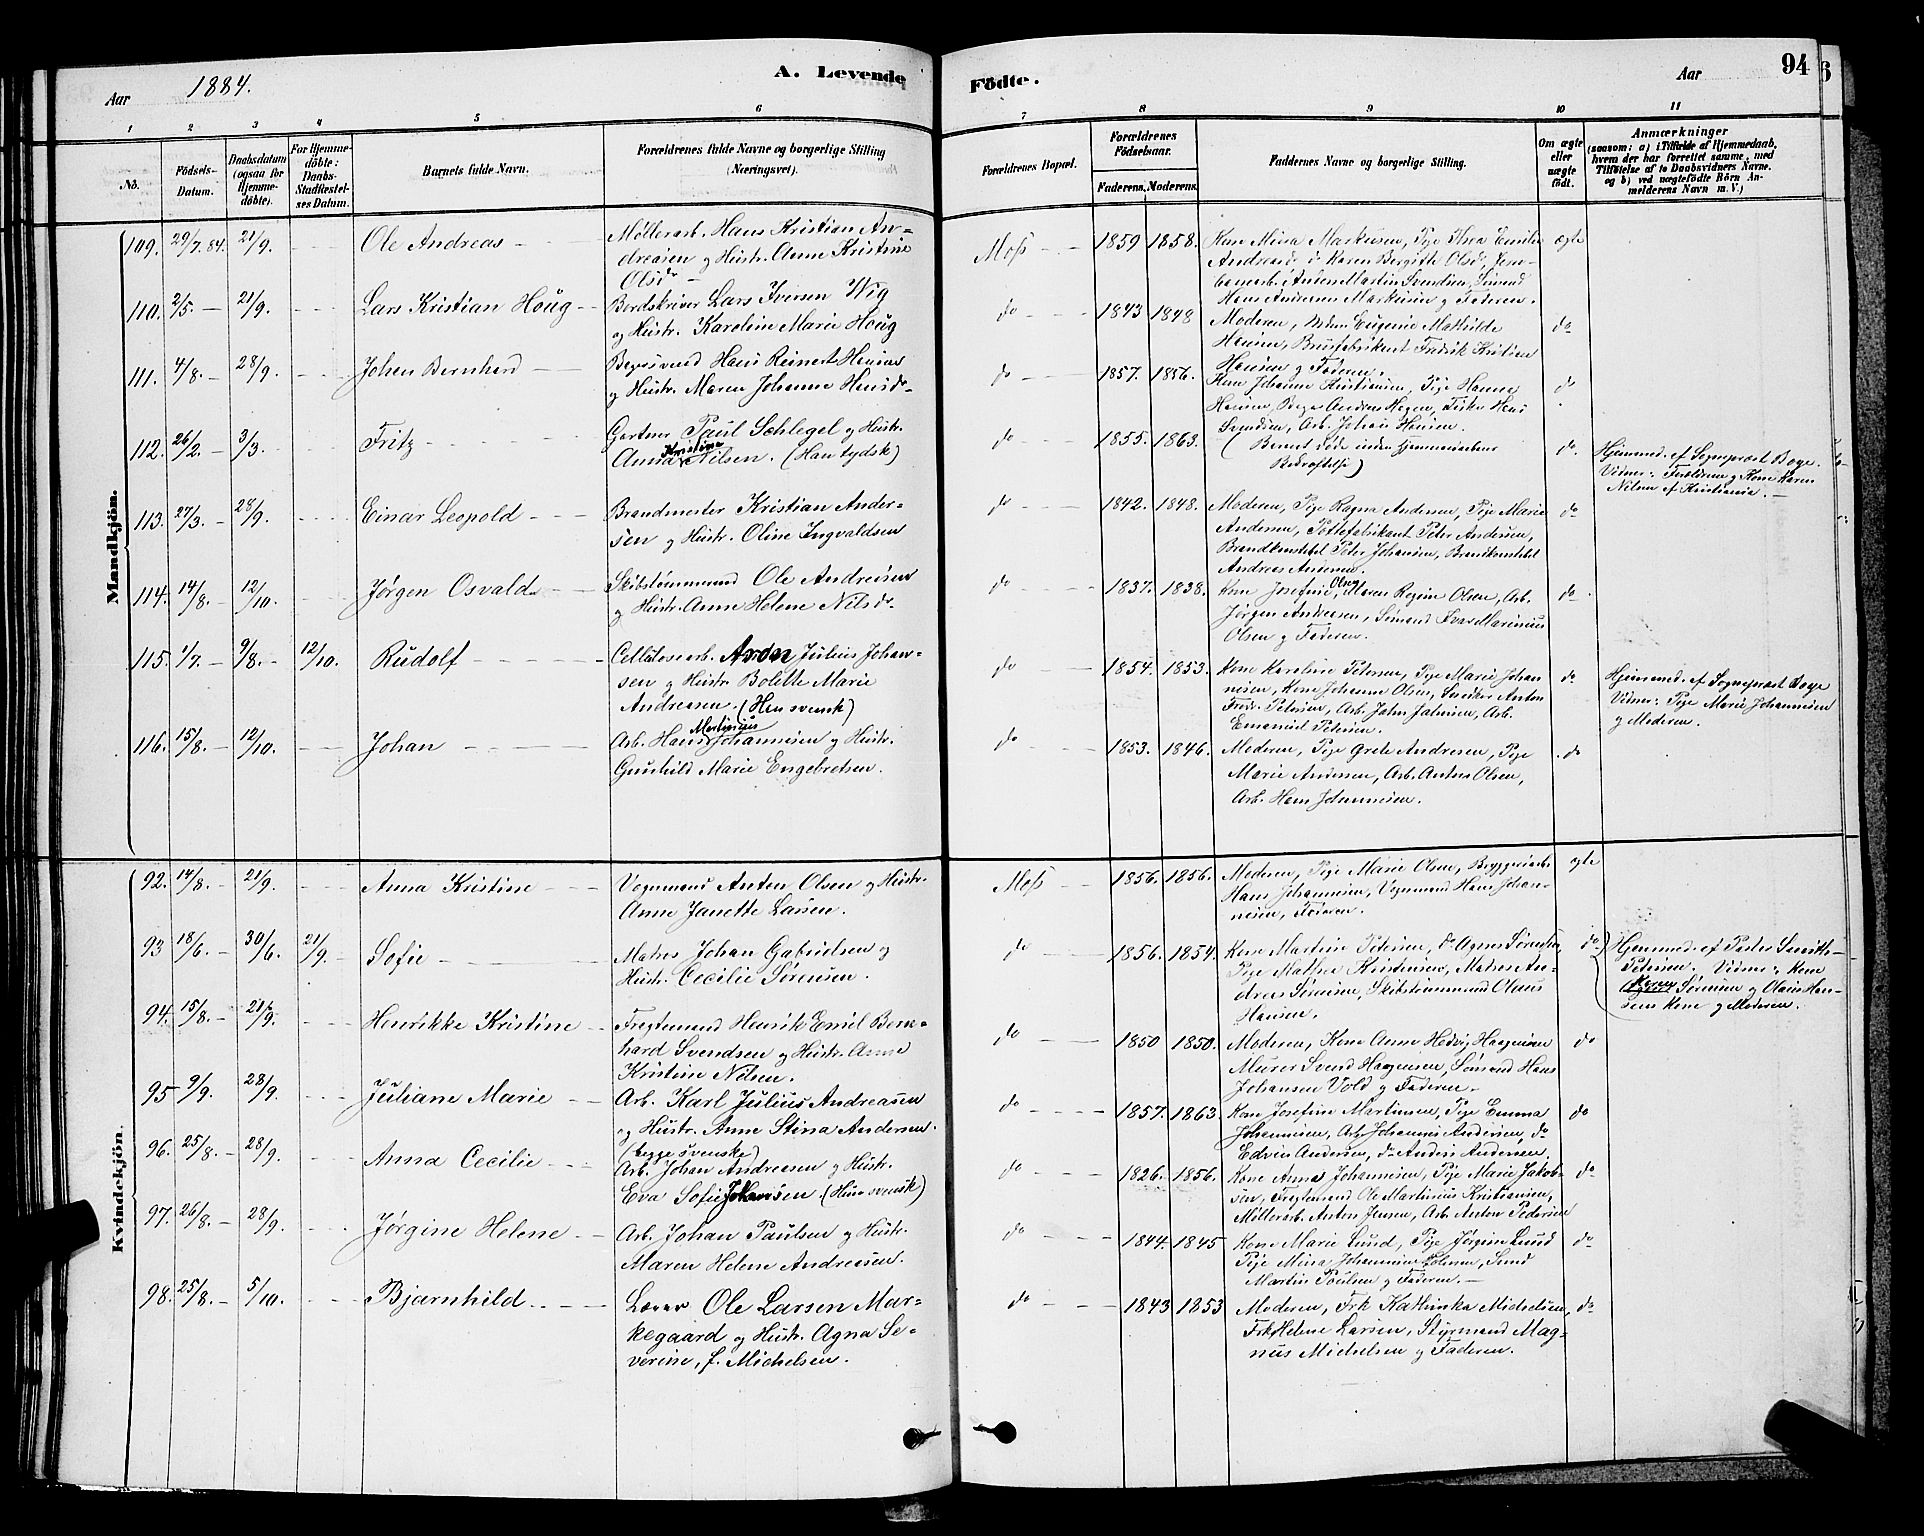 Aar 1884. A. Levende Födte. Aar 94
6
1 2 3 4 5 6 7 8 9 10 11
No. Födsels-Datum. Daabsdatum (ogsaa for Hjemmedöbte). For Hjemmedöbte: Daabs-Stadfestelses Datum. Barnets fulde Navn. Forældrenes fulde Navne og borgerlige Stilling (Næringsvei). Forældrenes Bopæl. Forældrenes Födselsaar. Faderens. Moderens. Faddernes Navne og borgerlige Stilling. Om ægte eller uægte födt. Anmærkninger (saasom: a) i Tilfælde af Hjemmedaab, hvem der har forrettet samme, med Tilföielse af to Daabsvidners Navne, og b) ved uægtefödte Börn Anmelderens Navn m. V.)
Mandkjön.
109. 29/7.84. 21/9. Ole Andreas Møllerarb. Hans Kristian An-
dreasen og Hustr. Anne Kristine
Olsdr.
Moss 1859 1858. Kone Mina Markusen, Pige Thea Emilie
Andreasd. Karen Bergitte Olsd.,
Anders Martin Svendsen, Sömand
Hans Andersen Markusen og Faderen.
ægte
110. 2/5. 21/9. Lars Kristian Houg Bordskriver Lars Iversen Wig
og Hustr. Karoline Marie Houg
do 1843 1848 Moderen, Eugenie Mathilde
Hansen, Brusfabrikant Fredrik Kristian
Hansen og Faderen.
do
111. 4/8. 28/9. Johan Bernhard Bagersvend Hans Reinert Hansen
og Hustr. Maren Johanne Hansdr.
do 1857. 1856. Kone Johanne Kristiansen, Pige Hanna
Hansen, Bager Andreas Hagen, Fisker Hans
Svendsen, Arb. Johan Hansen.
do
112. 26/2. 3/3. Fritz Gartner Paul Schlegel og Hustr.
Anna Kristine Nilsen. (Han tydsk)
do 1855. 1863. (Barnet döde inden Hjemmedaabens
Bekræftelse)
do. Hjemmed. af Sognepræst Boye.
Vidner: Forældrene og Kone Karen
Nilsen af Kristiania.
113. 27/3. 28/9. Einar Leopold Brandmester Kristian Ander-
sen og Hustr. Oline Ingvaldsen
do 1842. 1848. Moderen, Pige Ragna Andersen, Pige Marie
Andersen, Pottefabrikant Peter Andersen,
Brandkonstabel Peter Johansen, Brandkonstabel
Andreas Andersen.
do
114. 14/8. 12/10. Jørgen Osvald Skibstømmermand Ole Andreasen
og Hustr. Anne Helene Nilsdr.
do 1837. 1838. Kone Josefine Olsen, Maren Regine Olsen, Arb.
Jørgen Andersen, Sömand Marinius
Olsen og Faderen.
do
115. 1/7. 9/8. 12/10. Rudolf Cellulosearb. Aron Julius Johan-
sen og Hustr. Bolette Marie
Andreasen. (Han svensk)
do 1854. 1853. Kone Karoline Petersen, Pige Marie Johan-
nesen, Kone Johanne Olsen, Snedker Anton
Fredr. Petersen, Arb. John Johnsen, Arb.
Emanuel Petersen.
do Hjemmed. af Sognepræst Boye
Vidner: Pige Marie Johannesen
og Moderen.
116. 15/8. 12/10. Johan Arb. Hans Martinius Johannesen og Hustr.
Gunhild Marie Engebretsen.
do 1853. 1846. Moderen, Pige Grete Andresen, Pige
Marie Andersen, Arb. Anders Olsen,
Arb. Hans Johannesen.
do
Kvindekjön.
92. 14/8. 21/9. Anna Kristine Vognmand Anton Olsen og Hustr.
Anne Janette Larsen.
Moss 1856. 1856. Moderen, Pige Marie Olsen, Bryggeriarb.
Hans Johannesen, Vognmand Hans Johan-
nesen, Faderen.
ægte
93 18/6. 30/6. 21/9. Sofie Matros Johan Gabrielsen og
Hustr. Cecilie Sørensen.
do 1856. 1854. Kone Martine Petersen, do Agnes Sørensen,
Pige Mathea Kristensen, Matros An-
dreas Sørensen, Skibstømmermand Claus
Hansen.
do Hjemmed. af Pastor Smitth-
Petersen. Vidner: Kone
Sørensen og Claus Han-
sens Kone og Moderen.
94. 15/8. 21/9. Henrikke Kristine Fragtemand Henrik Emil Bern-
hard Svendsen og Hustr. Anne
Kristine Nilsen.
do 1850 1850. Moderen, Kone Anne Hedvig Haagensen
Murer Svend Haagensen, Sømand Hans
Johansen Vold og Faderen.
do
95 9/9. 28/9. Juliane Marie Arb. Karl Julius Andreasen
og Hustr. Anne Stina Andersen.
(begge svenske)
do 1857. 1863. Kone Josefine Martinsen, Pige Emma
Johannesen, Arb. Johannes Andersen, do
Edvin Andersen, do Anders Andersen.
do
96. 25/8. 28/9. Anna Cecilie Arb. Johan Andreasen og Hustr.
Eva Sofie Johansen (Hun svensk)
do 1826. 1856. Kone Anna Johannesen, Pige Marie Jakob-
sen, Fragtemand Ole Martinius Kristiansen,
Møllerarb. Anton Jensen, Arb. Anton Pedersen
do
97. 26/8. 28/9. Jørgine Helene Arb. Johan Paulsen og Hustr.
Maren Helene Andreasen.
do 1844. 1845 Kone Marie Lund, Pige Jørgine Lund
Pige Mina Johannesen,
Martin Poulsen og Faderen.
do
98. 25/8. 5/10. Bjarnhild Lærer Ole Larsen Mar-
kegaard og Hustr. Agna Se-
verine, f. Michelsen.
do 1843 1853 Moderen, Frk Kathinka Michelsen,
Frk Helene Larsen, Styrmand Mag-
nus Michelsen og Faderen.
do